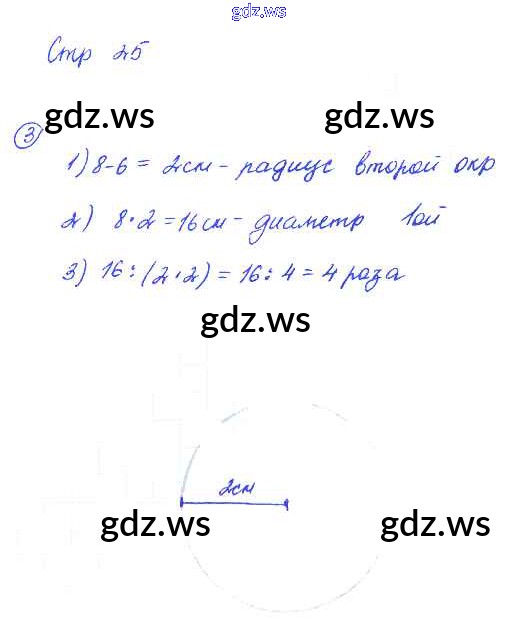 gdz.ws
Стр 25
gdz.ws gdz.ws
3
1) 8-6 = 2см - радиус второй окр
2) 8·2 = 16 см - диаметр 1ой
3) 16 : (2·2) = 16 : 4 = 4 раза
gdz.ws
2см
gdz.ws gdz.ws